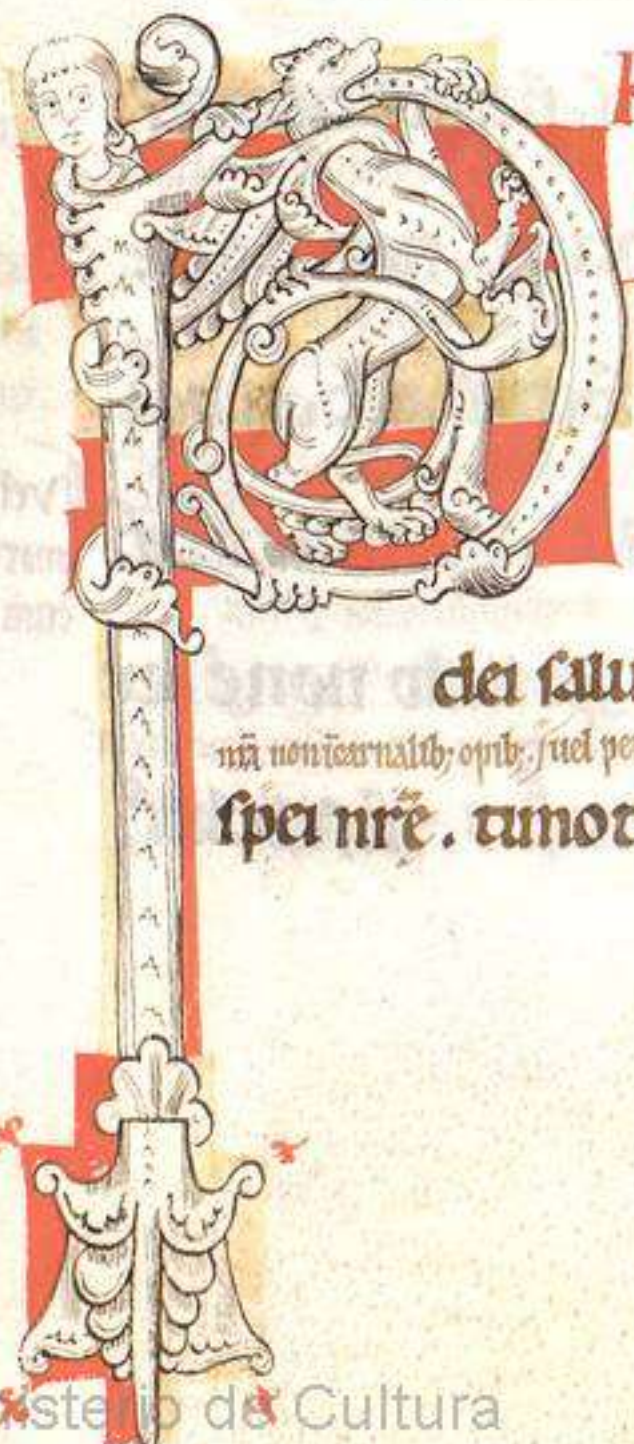 P
dei salu
mã non icarnalib; opib; s uel pe
spei nrẽ. timot
isterio de Cultura